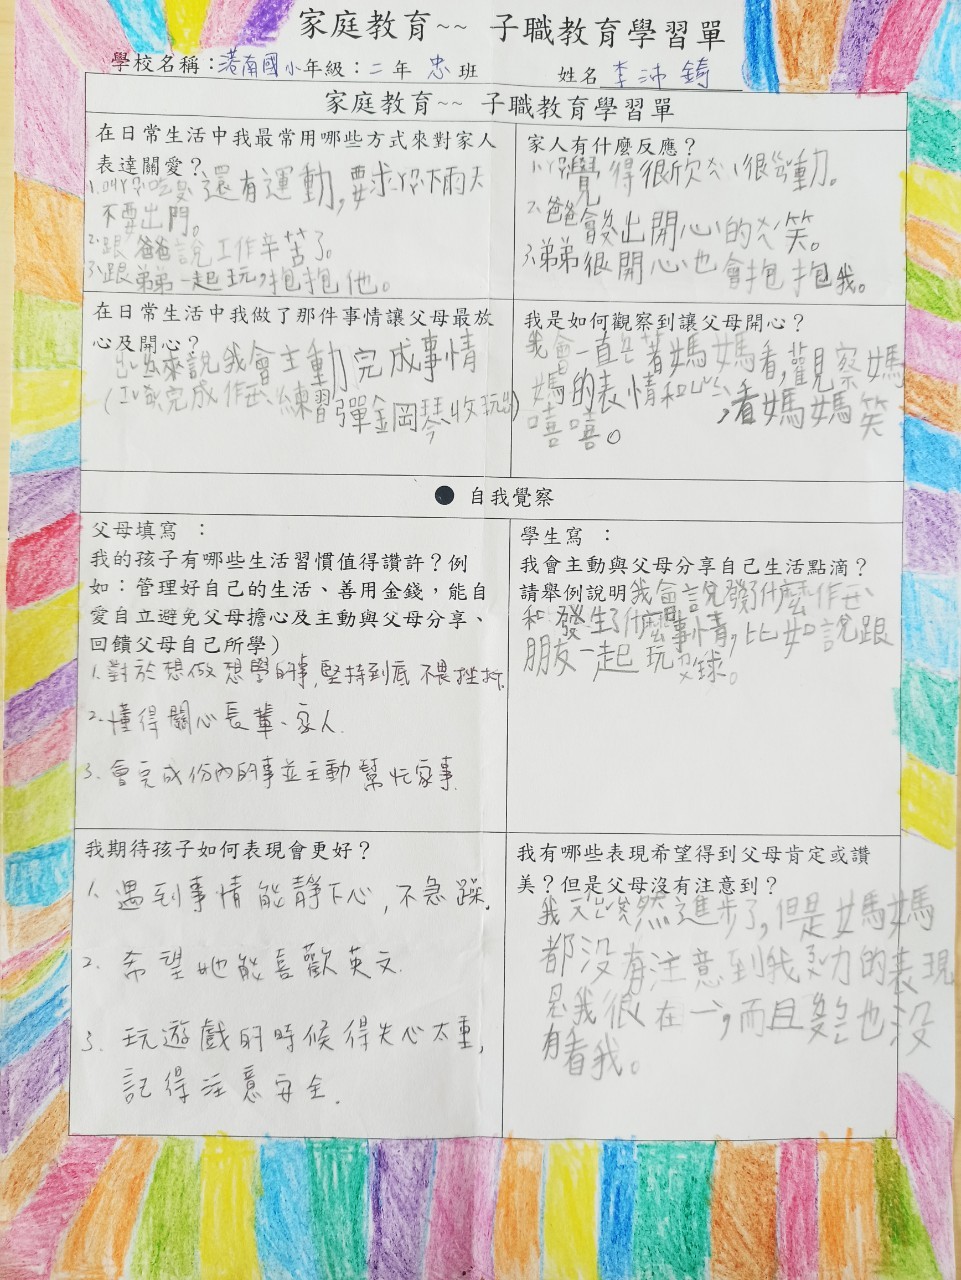 家庭教育~~ 子職教育學習單
學校名稱：港南國小年級：二年 忠班 姓名 李沛錡
家庭教育~~ 子職教育學習單
在日常生活中我最常用哪些方式來對家人
表達關愛？
還有運動，要求 下雨天
不要出門。
2.跟爸爸說工作辛苦了。
3.跟弟弟一起玩，抱抱他。
家人有什麼反應？
覺得很欣ㄨㄟˋ很 動。
2.爸爸會發出開心的 笑。
3.弟弟很開心也會抱抱我。
在日常生活中我做了那件事情讓父母最放
心及開心？
來說我會主動完成事情
完成作 、練習彈鋼琴、收玩
我是如何觀察到讓父母開心？
我會一直 著媽媽看，觀察媽
媽的表情和 ，看媽媽笑
嘻嘻。
● 自我覺察
父母填寫 ：
我的孩子有哪些生活習慣值得讚許？例
如：管理好自己的生活、善用金錢，能自
愛自立避免父母擔心及主動與父母分享、
回饋父母自己所學）
1.對於想做想學的事,堅持到底不畏挫折.
2.懂得關心長輩、家人.
3.會完成份內的事並主動幫忙家事.
學生寫 ：
我會主動與父母分享自己生活點滴？
請舉例說明我會說發什麼作
和發生了什麼事情，比如說跟
朋友一起玩 球。
我期待孩子如何表現會更好？
1.遇到事情能靜下心,不急躁.
2.希望她能喜歡英文.
3.玩遊戲的時候得失心太重,
記得注意安全.
我有哪些表現希望得到父母肯定或讚
美？但是父母沒有注意到？
我 然進步了，但是媽媽
都沒有注意到我努力的表現
我很在一ˋ，而且 也沒
有看我。